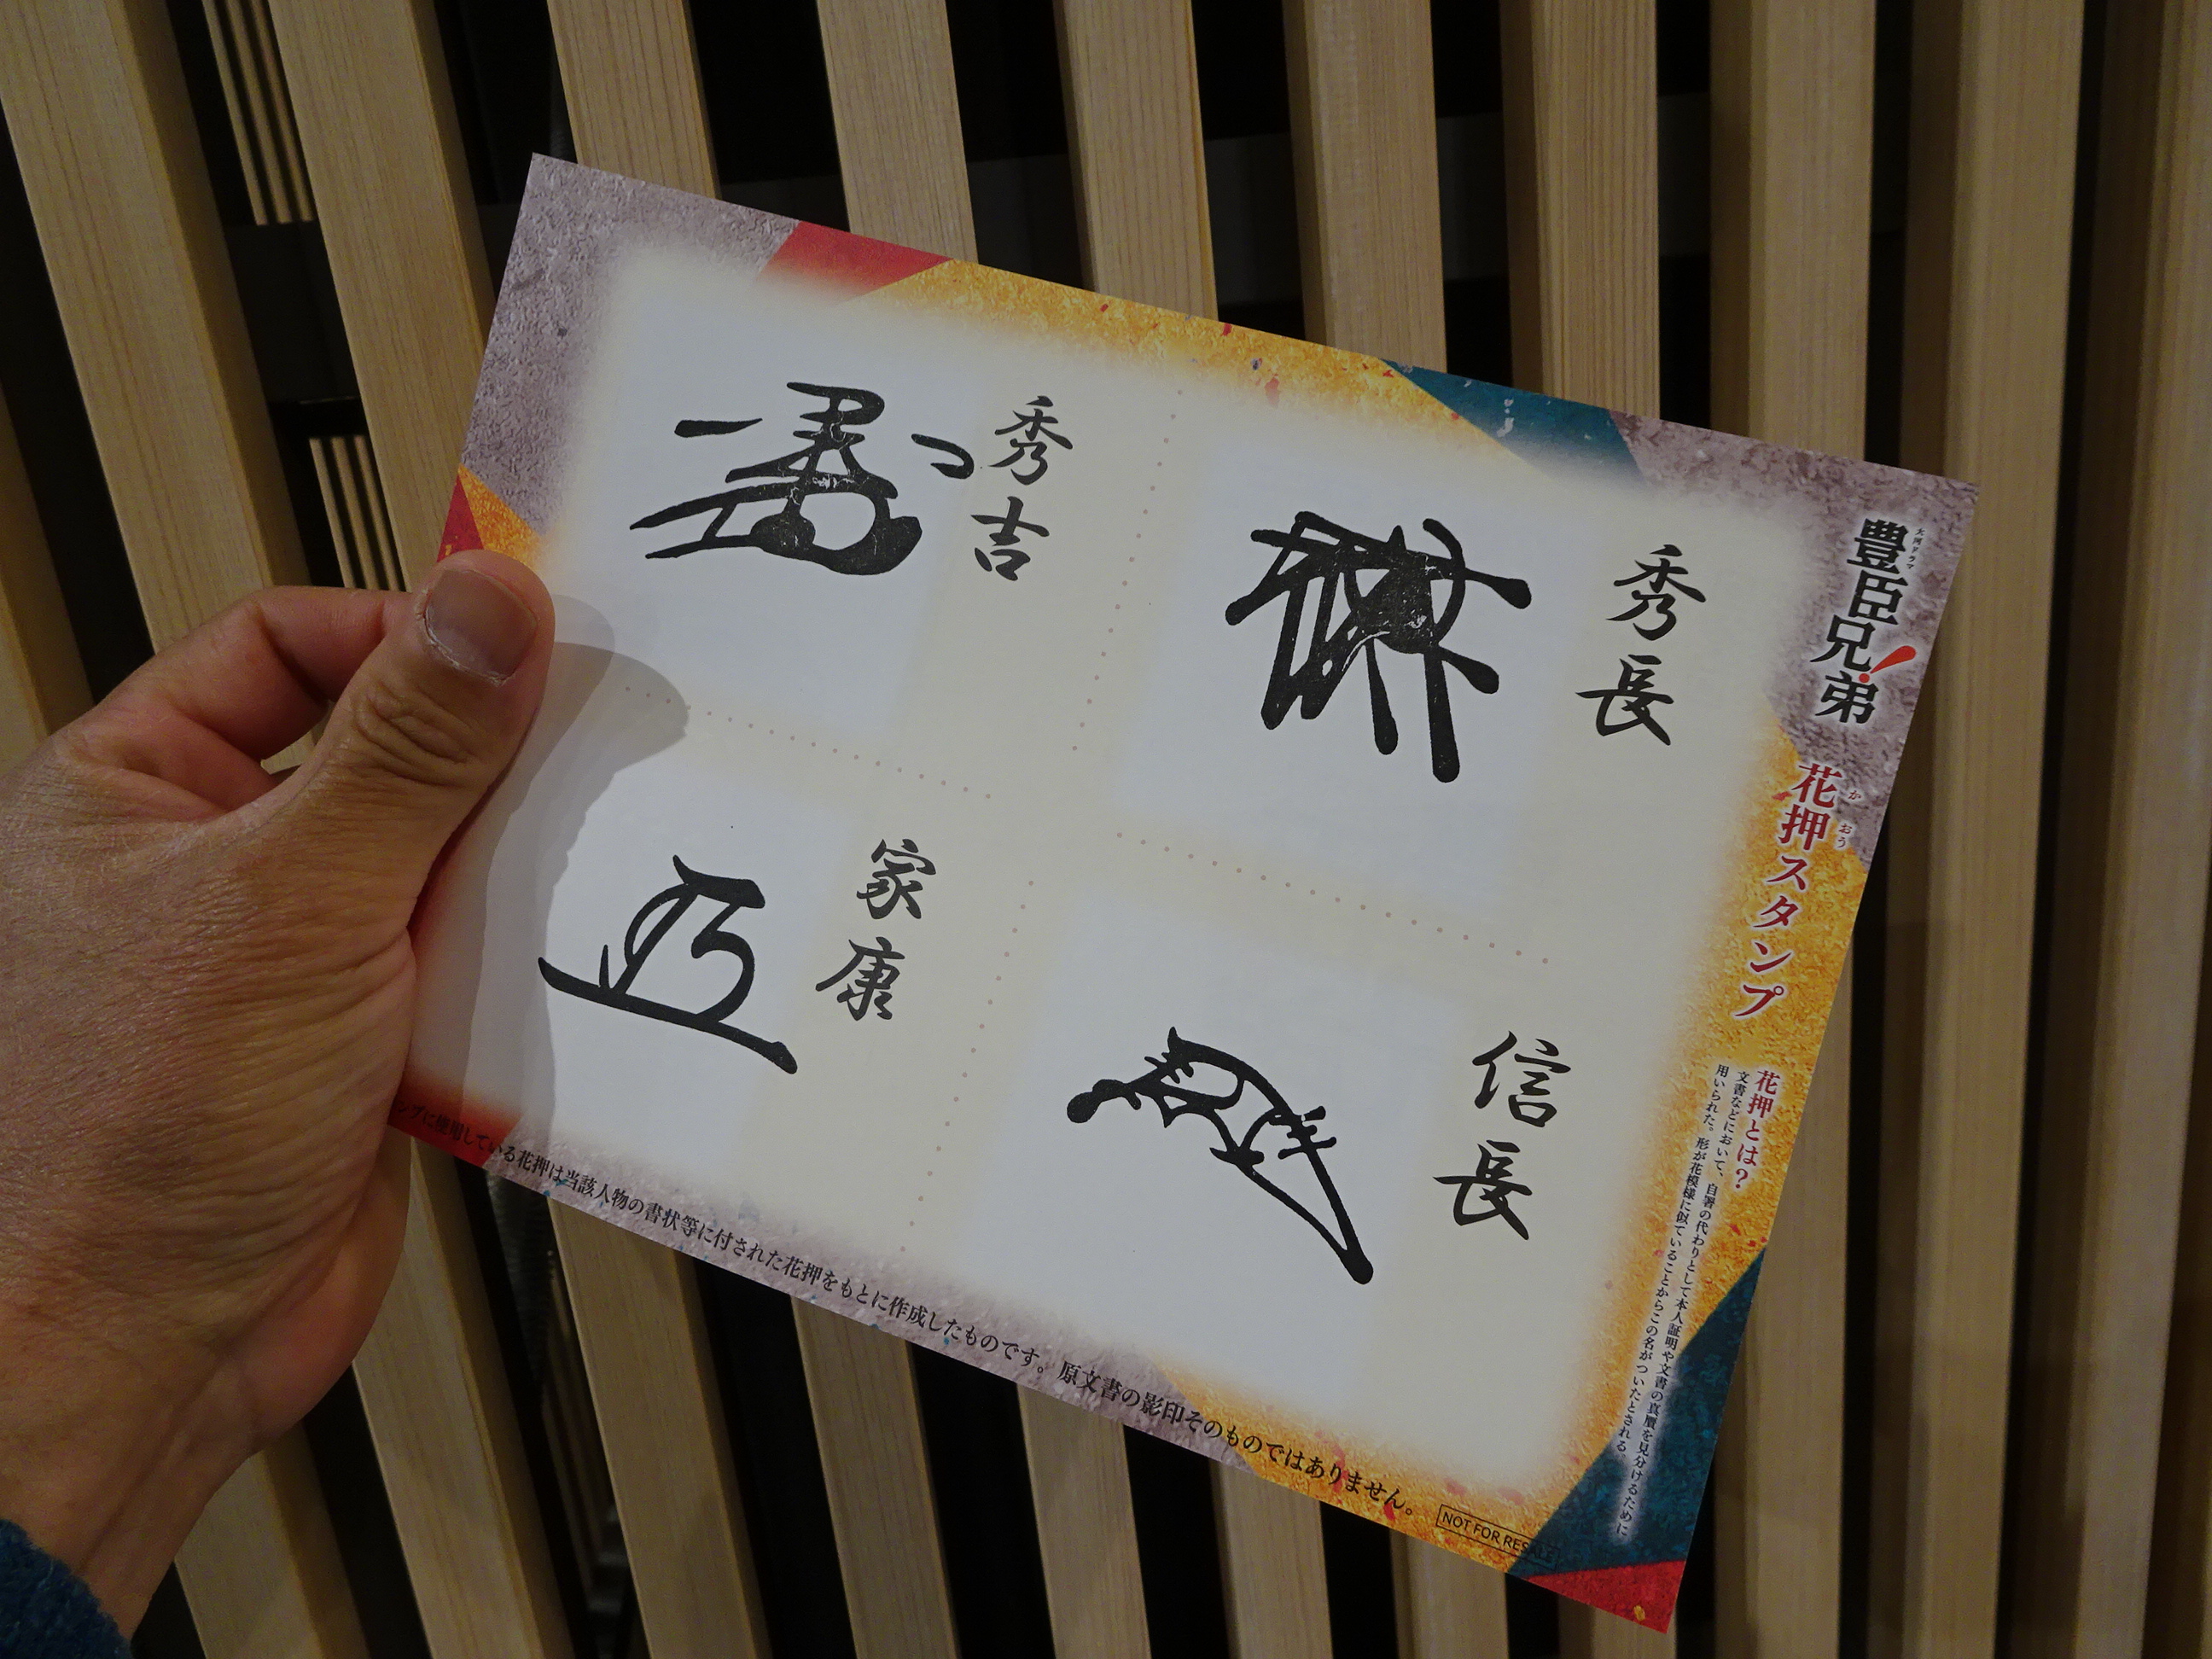 大河ドラマ
豊臣兄弟!
花押スタンプ
かおう
花押とは?
文書などにおいて、自署の代わりとして本人証明や文書の真贋を見分けるために
用いられた。形が花模様に似ていることからこの名がついたとされる。
秀長
秀吉
信長
家康
ンプに使用している花押は当該人物の書状等に付された花押をもとに作成したものです。原文書の影印そのものではありません。
NOT FOR RESALE